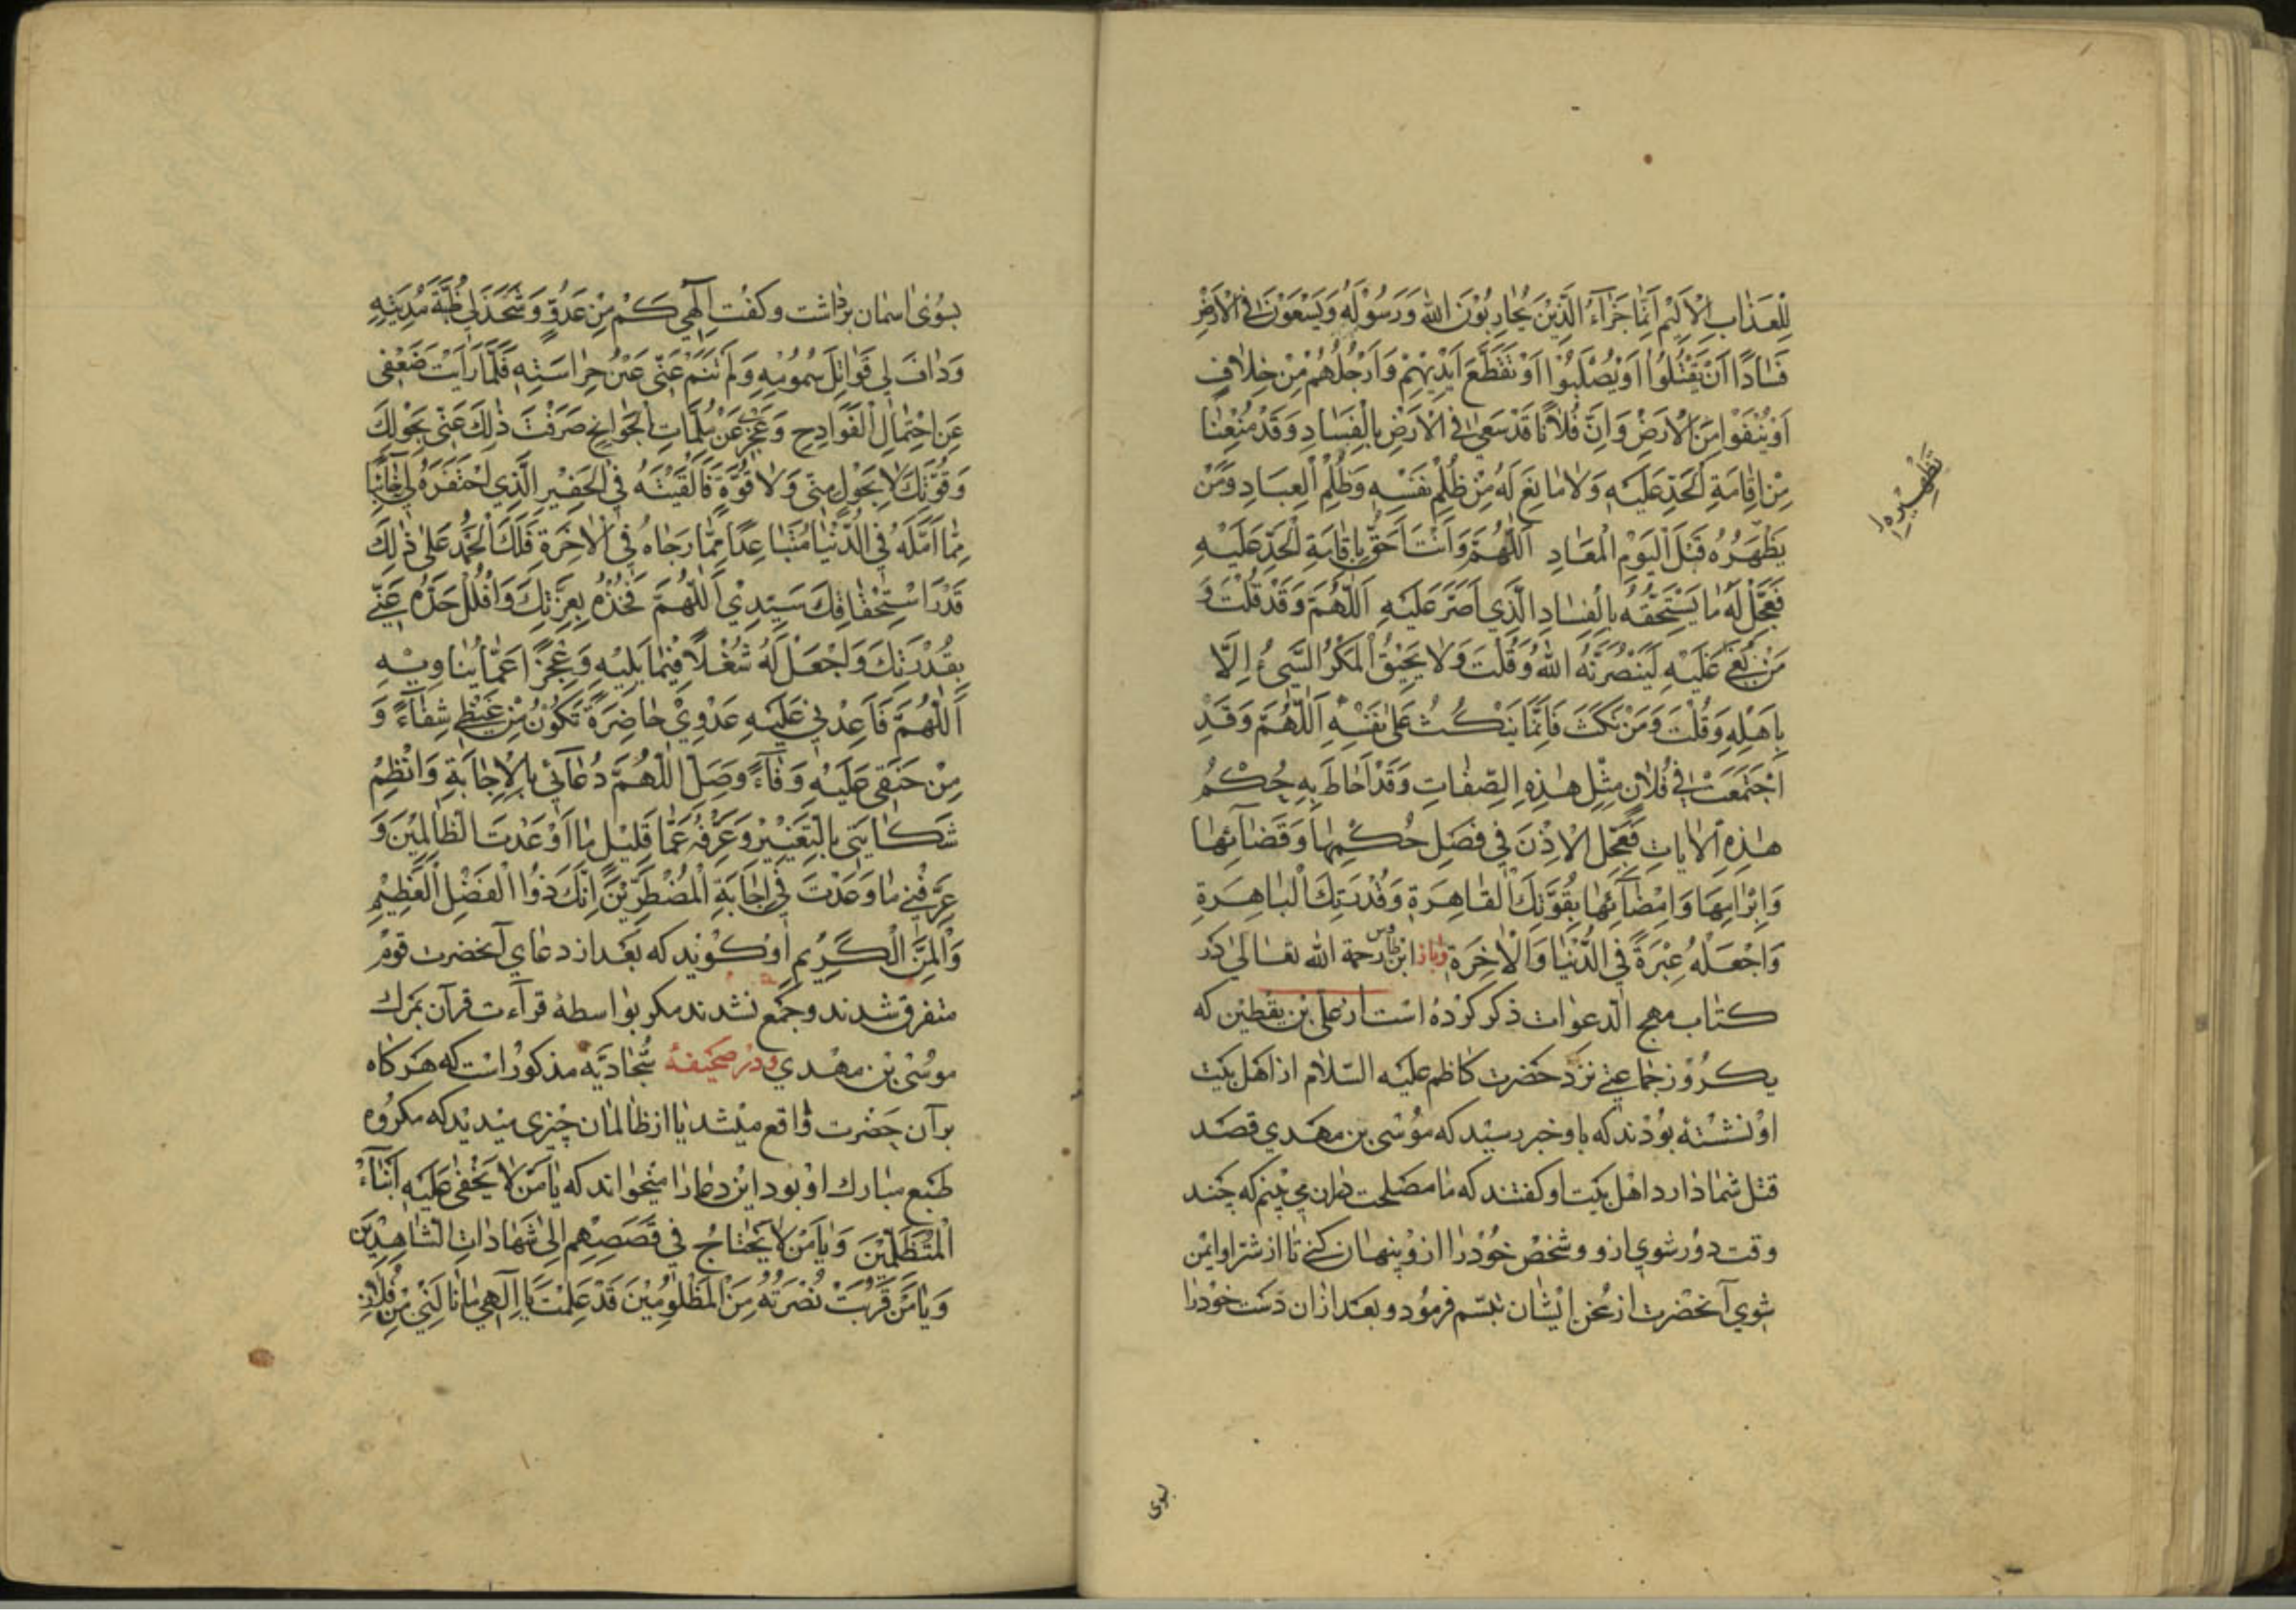 لِلْعَذابِ الْاَلیْمِ اَنَّما جَزآءُ الَّذیْنَ یُحارِبُوْنَ اللهَ وَرَسُوْلَهُ وَیَسْعَوْنَ فِی الْاَرْضِ
فَسادًا اَنْ یُقَتَّلُوْا اَوْ یُصَلَّبُوْا اَوْ تُقَطَّعَ اَیْدِیْهِمْ وَاَرْجُلُهُمْ مِنْ خِلافٍ
اَوْ یُنْفَوْا مِنَ الْاَرْضِ وَاِنَّ فُلانًا قَدْ سَعیٰ فِی الْاَرْضِ بِالْفَسادِ وَقَدْ مُنِعْنا
مِنْ اِقامَةِ الْحَدِّ عَلَیْهِ وَلا مانِعَ لَهُ مِنْ ظُلْمِ نَفْسِهِ وَظُلْمِ الْعِبادِ وَمَنْ
یَظْهَرُهُ قَبْلَ الْیَوْمِ الْمَعادِ اَللّهُمَّ وَاَنْتَ اَحَقُّ بِاِقامَةِ الْحَدِّ عَلَیْهِ
فَعَجِّلْ لَهُ ما یَسْتَحِقُّهُ بِالْفَسادِ الَّذی اَصَرَّ عَلَیْهِ اَللّهُمَّ وَقَدْ قُلْتَ وَ
مَنْ بُغِیَ عَلَیْهِ لَیَنْصُرَنَّهُ اللهُ وَقُلْتَ وَلا یَحِیْقُ الْمَكْرُ السَّیِّئُ اِلَّا
بِاَهْلِهِ وَقُلْتَ وَمَنْ نَكَثَ فَاِنَّما یَنْكُثُ عَلیٰ نَفْسِهِ اَللّهُمَّ وَقَدِ
اجْتَمَعَتْ فی فُلانٍ مِثْلُ هذِهِ الصِّفاتِ وَقَدْ اَحاطَ بِهِ حُكْمُ
هذِهِ الْایاتِ فَعَجِّلِ الْاِذْنَ فی فَصْلِ حُكْمِها وَقَضآئِها
وَاِبْرامِها وَاِمْضآئِها بِقُوَّتِكَ الْقاهِرَةِ وَقُدْرَتِكَ الْباهِرَةِ
وَاجْعَلْهُ عِبْرَةً فِی الدُّنْیا وَالْاخِرَةِ وباز ابن طاوس رحمة الله تعالی در
كتاب مهج الدعوات ذكر كرده است از علی بن یقطین كه
یكروز جماعتی نزد حضرت كاظم علیه السلام از اهل بیت
او نشسته بودند كه باو خبر رسید كه موسی بن مهدی قصد
قتل شما دارد اهل بیت او كفتند كه ما مصلحت دران می بینم كه چند
وقت دور شوی ازو و شخص خود را ازو پنهان كنی تا از شر او ایمن
شوی آنحضرت از سخن ایشان تبسم فرمود و بعد ازان دست خود را
تطهیره
بسوی
بسوی اسمان برداشت و كفت اِلٓهی كَمْ مِنْ عَدُوٍّ وَشَحَذَ لی ظُبَةَ مُدْیَتِهِ
وَدافَ لی قَواتِلَ سُمُوْمِهِ وَلَمْ تَنَمْ عَنّی عَیْنُ حِراسَتِهِ فَلَمّا رَاَیْتَ ضَعْفی
عَنِ احْتِمالِ الْفَوادِحِ وَعَجْزی عَنْ مُلِمّاتِ الْجَوائِحِ صَرَفْتَ ذلِكَ عَنّی بِحَوْلِكَ
وَقُوَّتِكَ لا بِحَوْلٍ مِنّی وَلا قُوَّةٍ فَاَلْقَیْتَهُ فِی الْحَفِیْرِ الَّذی احْتَفَرَهُ لی خائِبًا
مِمّا اَمَّلَهُ فِی الدُّنْیا مُتَباعِدًا مِمّا رَجاهُ فِی الْاخِرَةِ فَلَكَ الْحَمْدُ عَلیٰ ذلِكَ
قَدْرَ اسْتِحْقاقِكَ سَیِّدِیْ اَللّهُمَّ فَخُذْهُ بِعِزَّتِكَ وَافْلُلْ حَدَّهُ عَنّی
بِقُدْرَتِكَ وَاجْعَلْ لَهُ شُغْلًا فِیْما یَلِیْهِ وَعَجْزًا عَمّا یُناوِیْهِ
اَللّهُمَّ فَاَعِدْنی عَلَیْهِ عَدْوِیْ حاضِرَةً تَكُوْنُ مِنْ غَیْظی شِفآءً وَ
مِنْ حَنَقی عَلَیْهِ وَفآءً وَصِلِ اللّهُمَّ دُعآئی بِالْاِجابَةِ وَانْظِمْ
شَكایَتی بِالتَّغْیِیْرِ وَعَرِّفْهُ عَمّا قَلِیْلٍ ما اَوْعَدْتَ الظّالِمِیْنَ وَ
عَرِّفْنی ما وَعَدْتَ فی اِجابَةِ الْمُضْطَرِّیْنَ اِنَّكَ ذُوا الْفَضْلِ الْعَظِیْمِ
وَالْمَنِّ الْكَرِیْمِ او كویند كه بعد از دعای آنحضرت قوم
متفرق شدند و جمع نشدند مكر بواسطهٔ قرآءت قرآن بمرك
موسی بن مهدی ودر صحیفهٔ سجادیّه مذكور است كه هر كاه
بر آن حضرت واقع میشد یا از ظالمان چیزی میدید كه مكروه
طبع مبارك او بود این دعا را میخواند كه یا مَنْ لا یَخْفیٰ عَلَیْهِ اَنْبآءُ
الْمُتَظَلِّمِیْنَ وَیا مَنْ لا یَحْتاجُ فی قَصَصِهِمْ اِلیٰ شَهاداتِ الشّاهِدِیْنَ
وَیا مَنْ قَرُبَتْ نُصْرَتُهُ مِنَ الْمَظْلُوْمِیْنَ قَدْ عَلِمْتَ یا اِلٓهی ما نالَنی مِنْ فُلانِ